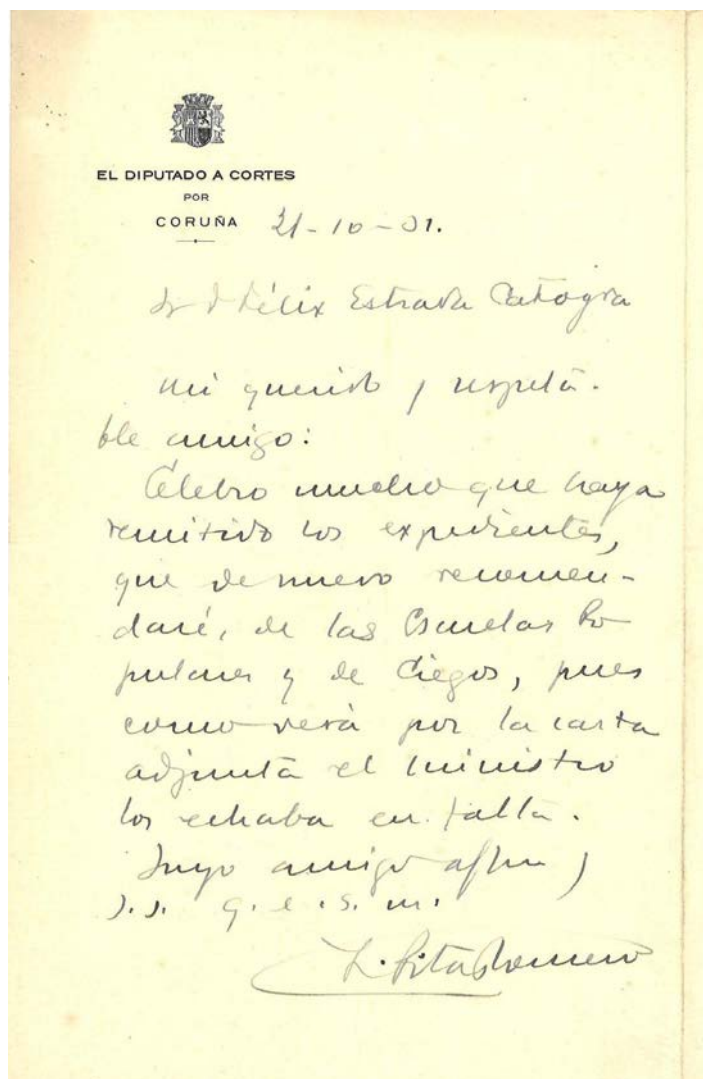 EL DIPUTADO A CORTES
POR
CORUÑA
21-10-31.
Sr D Félix Estrada Catoyra
Mi querido y respeta-
ble amigo:
Celebro mucho que haya
remitido los expedientes,
que de nuevo recomen-
daré, de las Escuelas Po
pulares y de Ciegos, pues
como verá por la carta
adjunta el ministro
los echaba en falta.
Suyo amigo affmo y
s.s. q.e.s.m.
L. Pita Romero